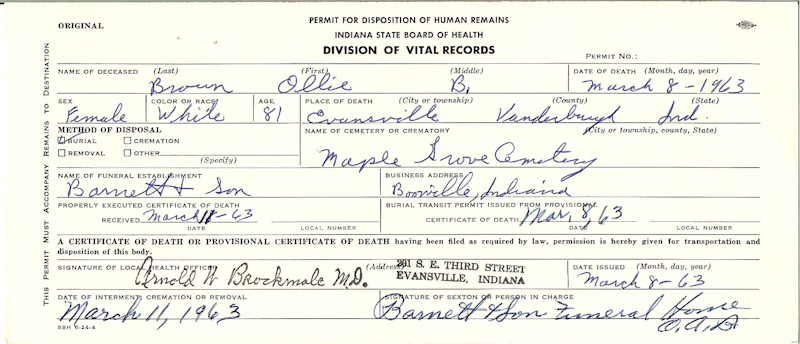 ORIGINAL
PERMIT FOR DISPOSITION OF HUMAN REMAINS
INDIANA STATE BOARD OF HEALTH
DIVISION OF VITAL RECORDS
PERMIT NO.:
THIS PERMIT MUST ACCOMPANY REMAINS TO DESTINATION
NAME OF DECEASED (Last) (First) (Middle) DATE OF DEATH (Month, day, year)
Brown Ollie B. March 8-1963
SEX COLOR OR RACE AGE PLACE OF DEATH (City or township) (County) (State)
Female White 81 Evansville Vanderburgh Ind.
METHOD OF DISPOSAL NAME OF CEMETERY OR CREMATORY (City or township, county, State)
BURIAL CREMATION
REMOVAL OTHER (Specify)
Maple Grove Cemetery
NAME OF FUNERAL ESTABLISHMENT BUSINESS ADDRESS
Barnett & Son Boonville, Indiana
PROPERLY EXECUTED CERTIFICATE OF DEATH BURIAL TRANSIT PERMIT ISSUED FROM PROVISIONAL
RECEIVED March 8-63 CERTIFICATE OF DEATH Mar. 8, 63
DATE LOCAL NUMBER DATE LOCAL NUMBER
A CERTIFICATE OF DEATH OR PROVISIONAL CERTIFICATE OF DEATH having been filed as required by law, permission is hereby given for transportation and
disposition of this body.
SIGNATURE OF LOCAL HEALTH OFFICER (Address) 201 S. E. THIRD STREET DATE ISSUED (Month, day, year)
Arnold W Brockmole M.D. EVANSVILLE, INDIANA March 8-63
DATE OF INTERMENT, CREMATION OR REMOVAL SIGNATURE OF SEXTON OR PERSON IN CHARGE
March 11, 1963 Barnett & Son Funeral Home
O.A.B.
SBH 6-24-4